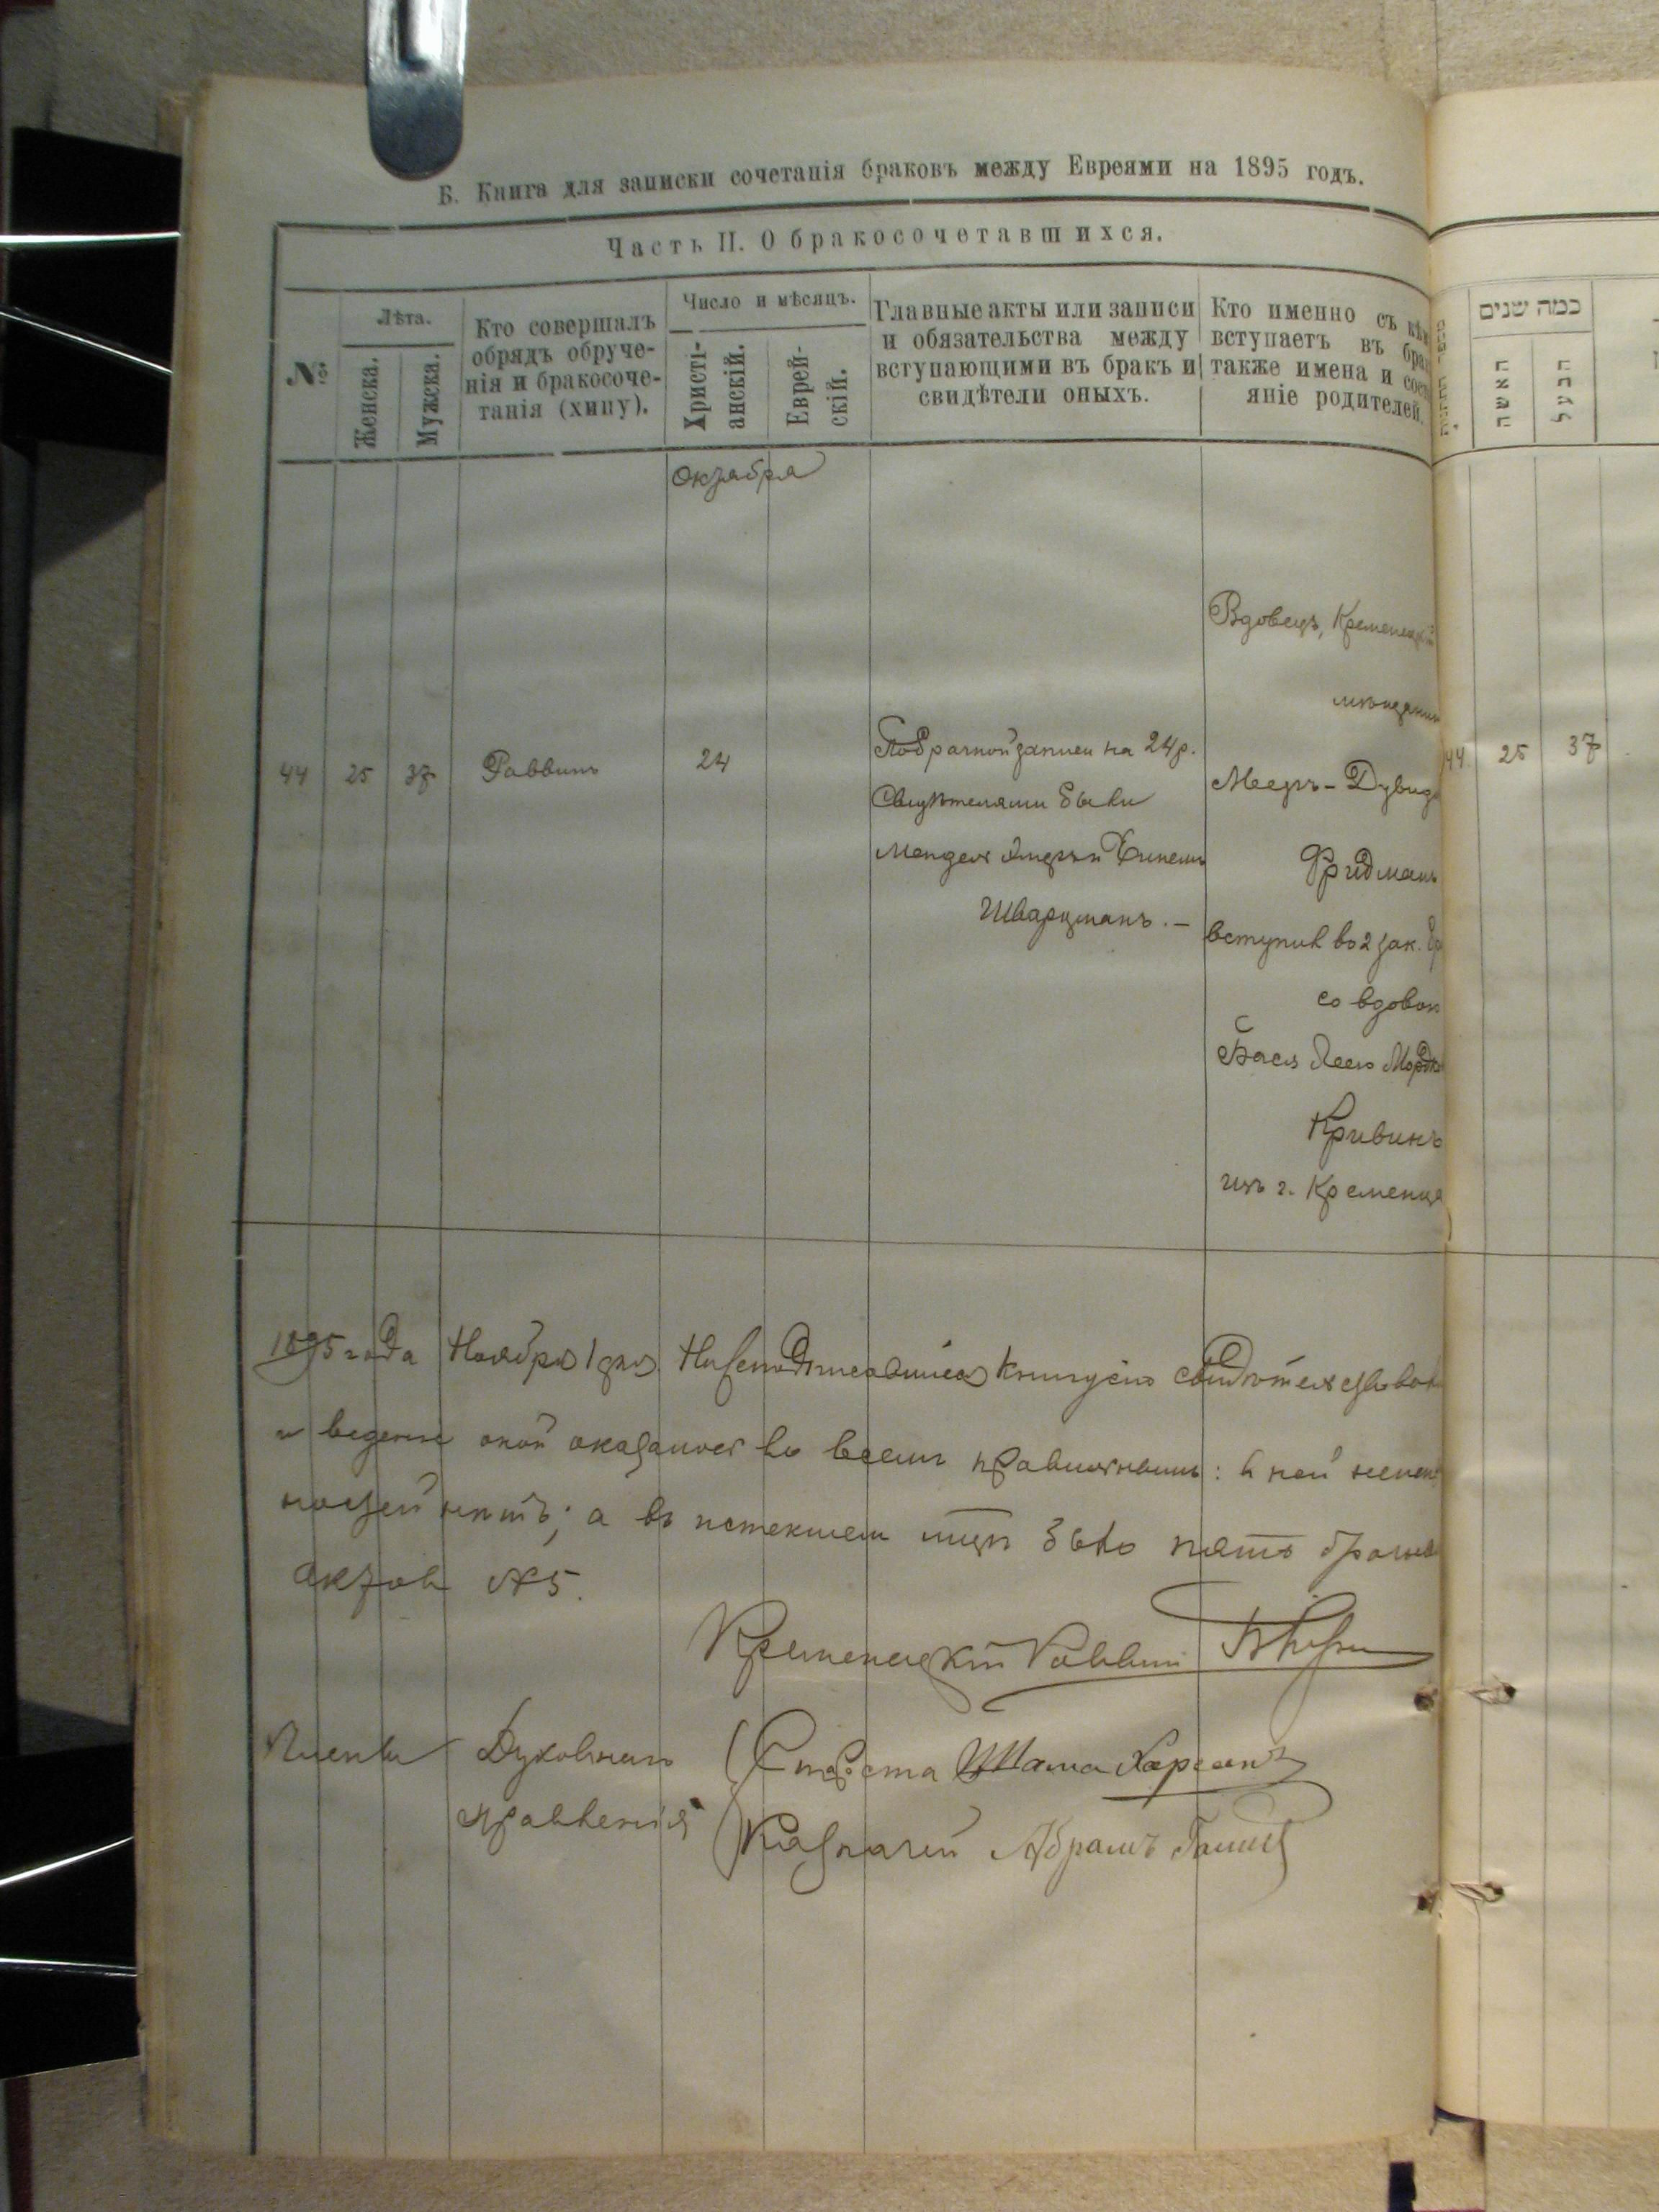 Б. Книга для записки сочетанія браковъ между Евреями на 1895 годъ.
Часть II. О бракосочетавшихся.
№
Лѣта.
Женска.
Мужска.
Кто совершалъ
обрядъ обруче-
нія и бракосоче-
танія (хипу).
Число и мѣсяцъ.
Христі-
анскій.
Еврей-
скій.
Главные акты или записи
и обязательства между
вступающими въ бракъ и
свидѣтели оныхъ.
Кто именно съ кѣм
вступаетъ въ бра
также имена и сос
яніе родителей.
כמה שנים
האשה
הבעל
Октября
44
25
37
Раввинъ
24
Побрачной записи на 24 р.
Свидѣтелями были
Мендель
Шварцманъ. —
Вдовецъ, Кременецкій
мѣщанин
Мееръ-Дувид
Фридманъ
вступил во 2 зак. бр
со вдовой
Бася Леею Мордк
Кривинъ
изъ г. Кременца
44
25
37
1895 года Ноября 1 дня Нижеподписавшіеся книгу сію свидѣтельствов
и веденіе оной оказалось во всемъ правильнымъ: в ней
нѣтъ; а въ истекшем мцѣ было пять брачн
актов №5.
Кременецкій Раввин
Члены Духовнаго
правленія
Староста
Казначей Абрамъ